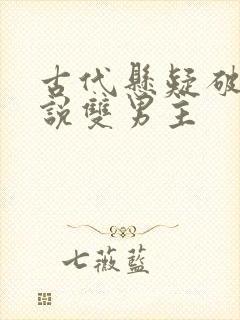 古代懸疑破
說雙男主
七薇藍